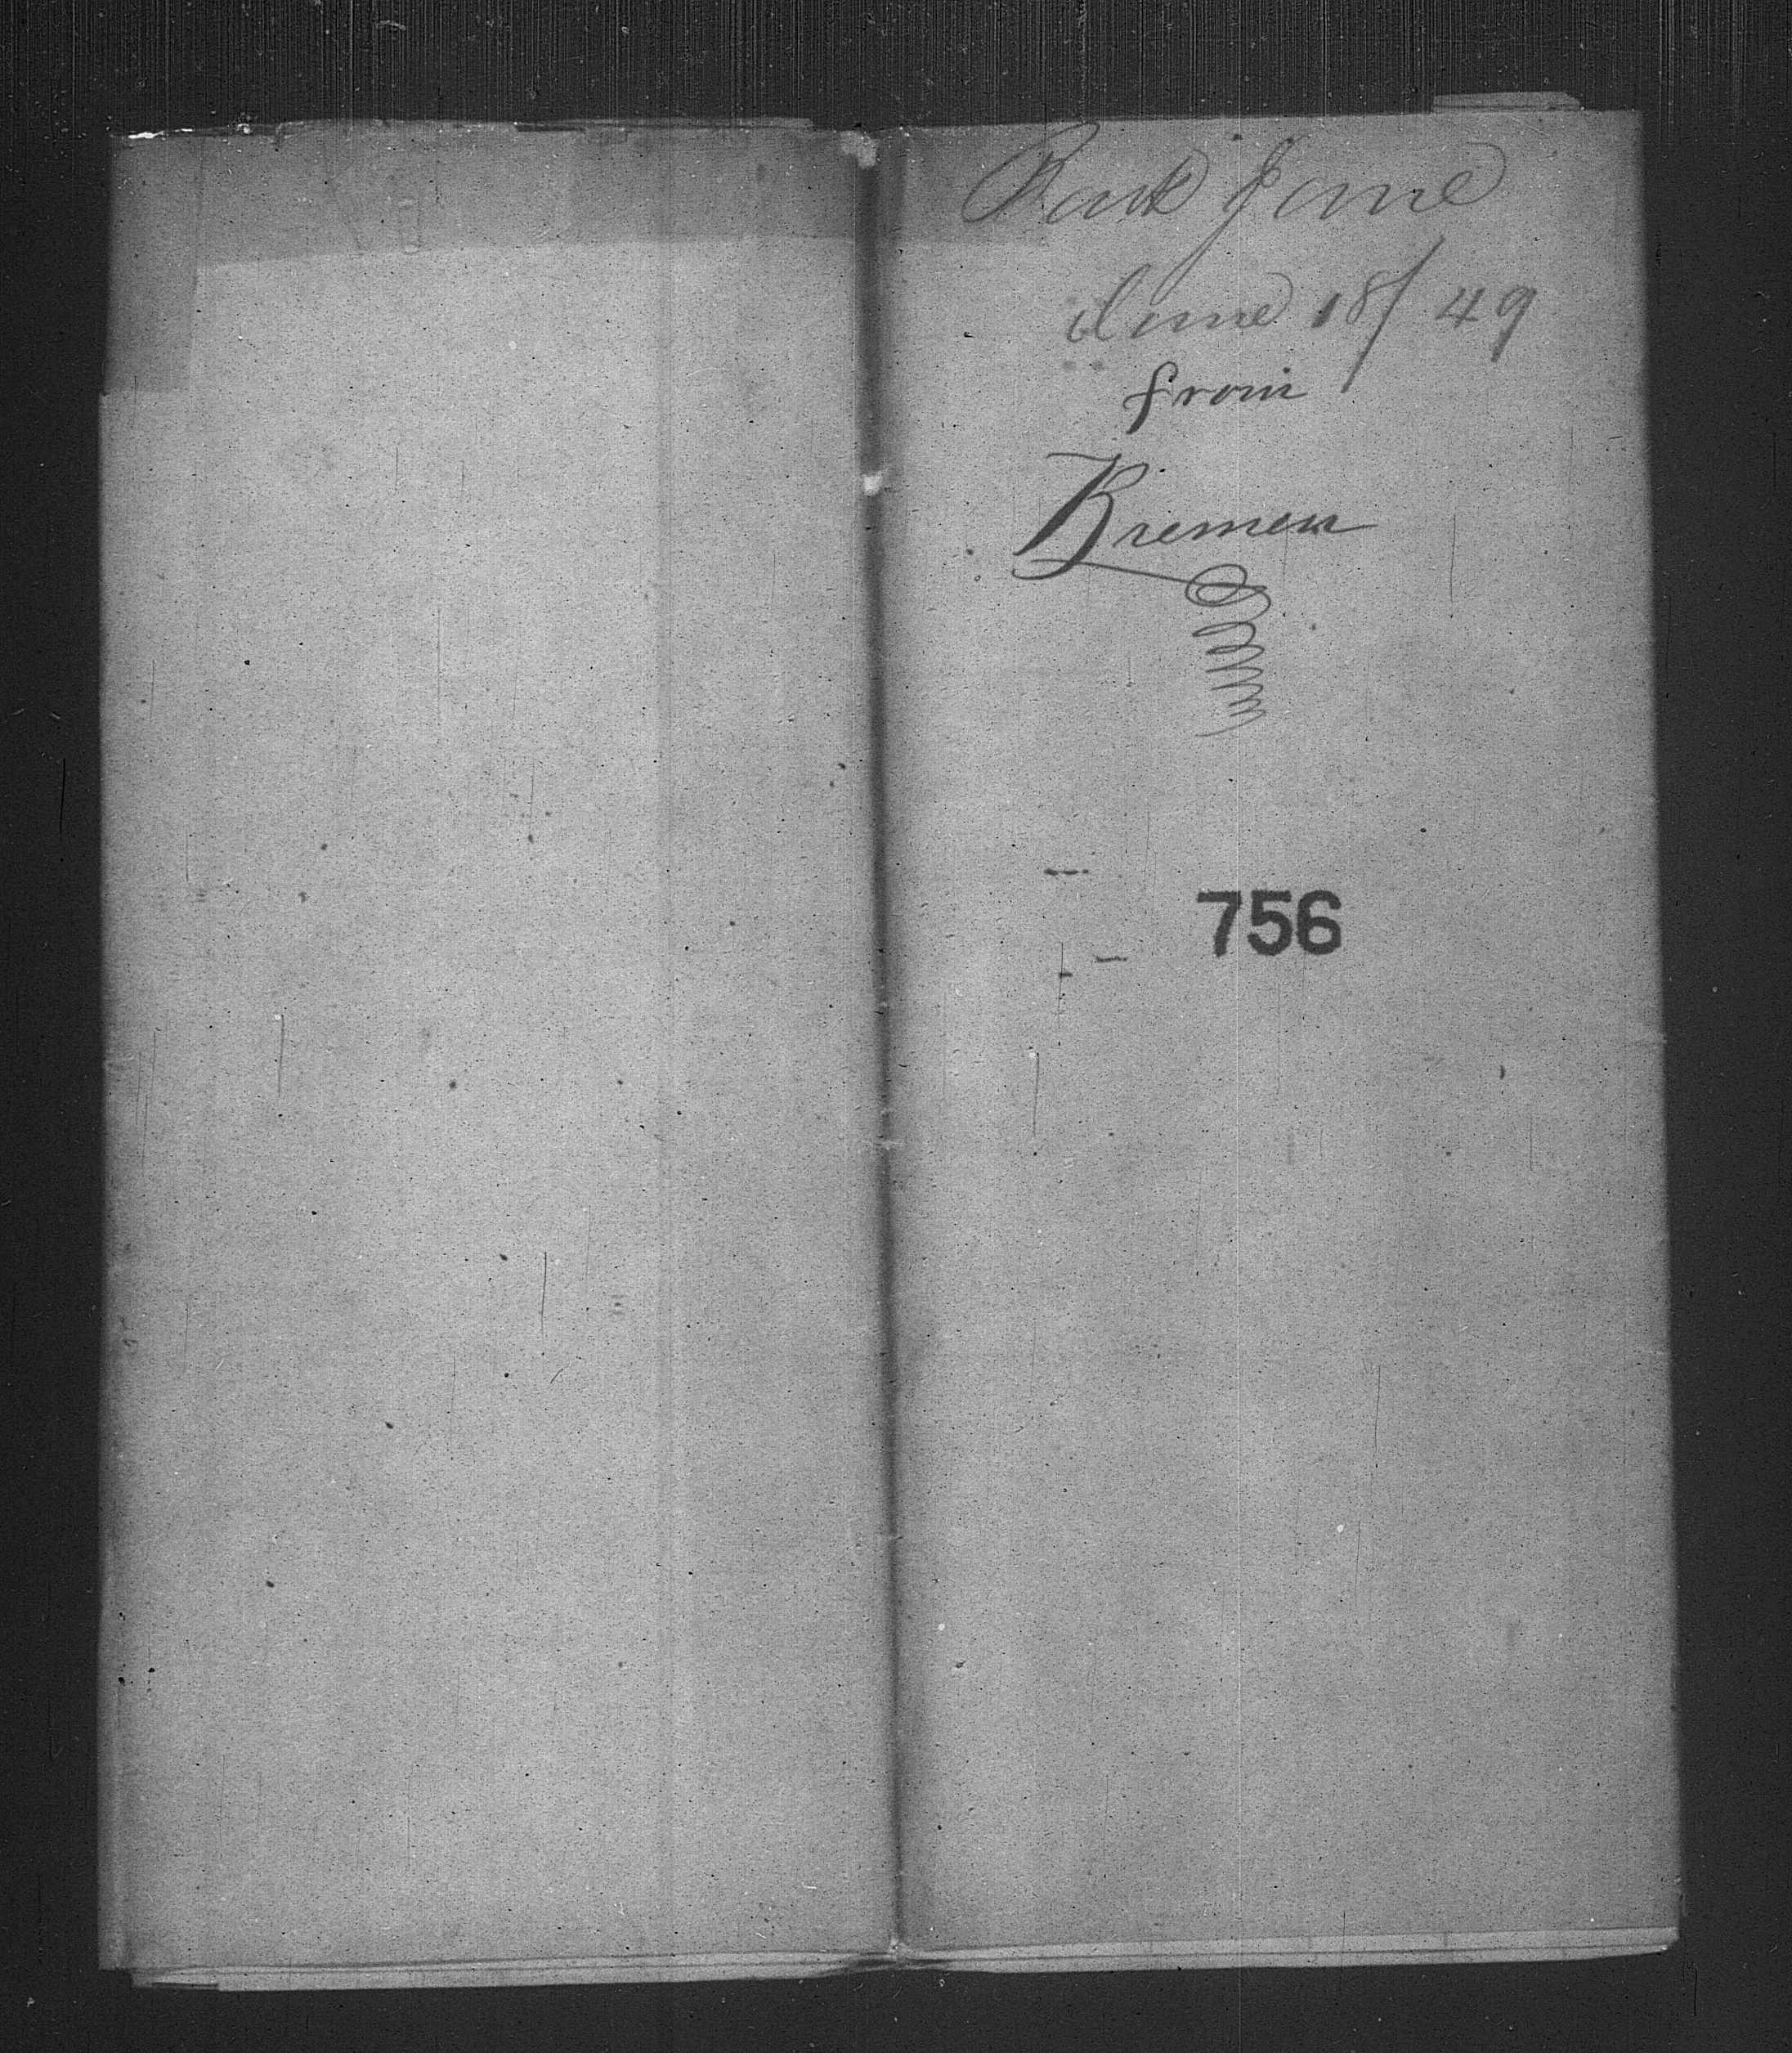 Bark Jane
June 18/49
from
Bremen
756